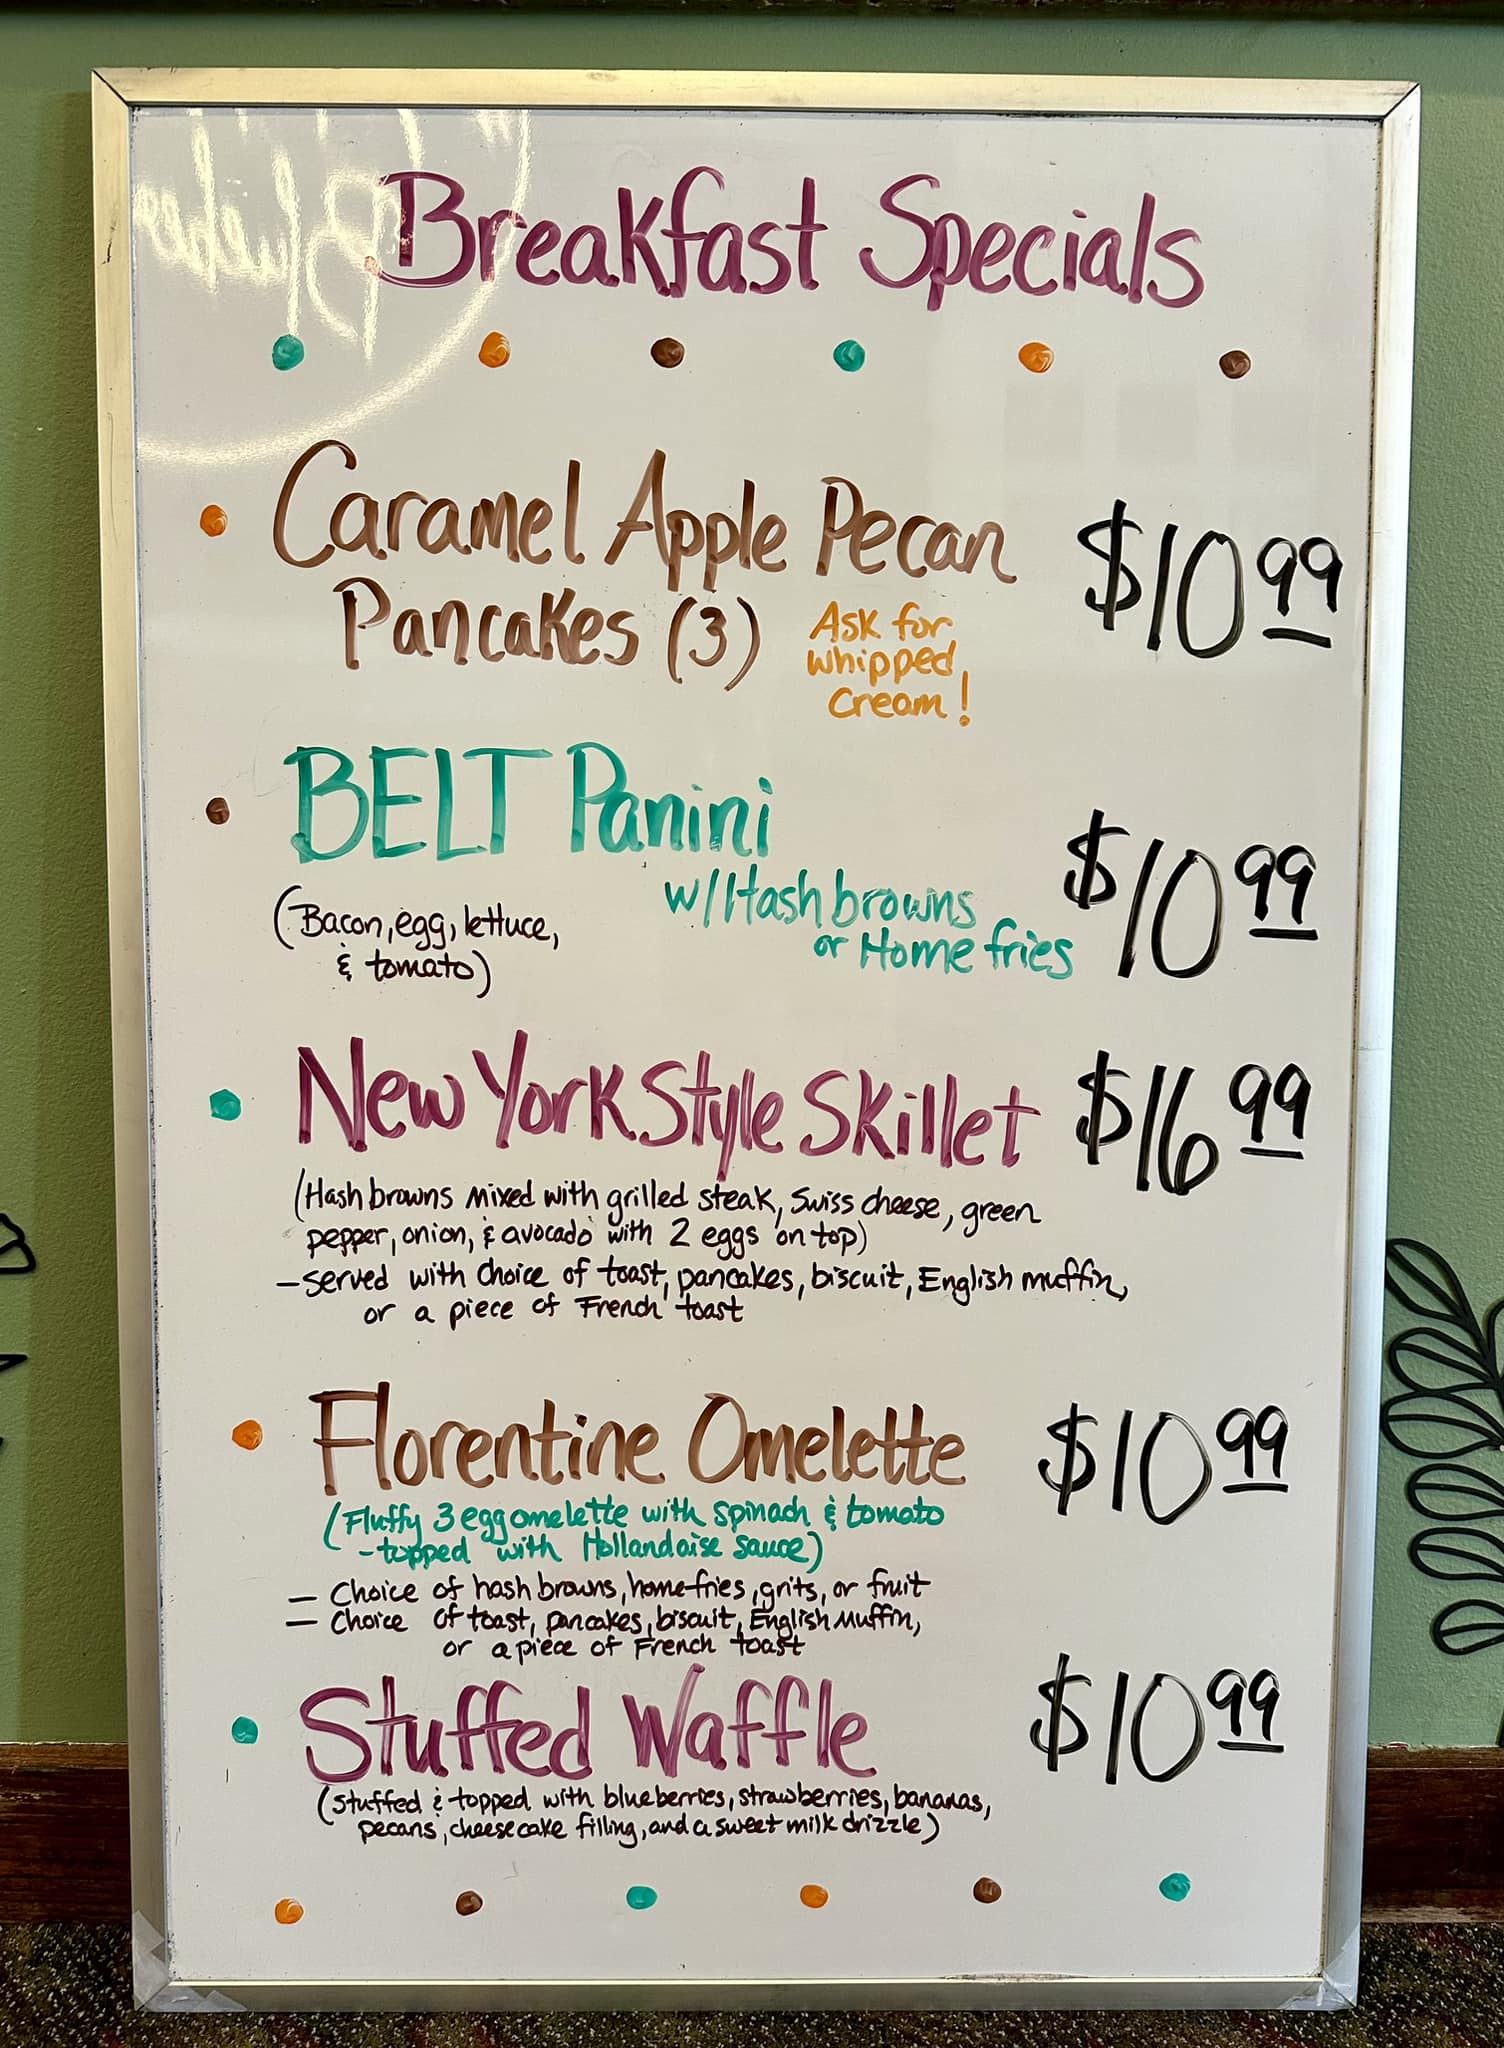 Breakfast Specials
Caramel Apple Pecan
Pancakes (3)
Ask for
whipped
cream!
$10.99
BELT Panini
w/Hash browns
or Home fries
(Bacon, egg, lettuce,
& tomato)
$10.99
New York Style Skillet $16.99
(Hash browns mixed with grilled steak, Swiss cheese, green
pepper, onion, & avocado with 2 eggs on top)
- served with choice of toast, pancakes, biscuit, English muffin,
or a piece of French toast
Florentine Omelette $10.99
(Fluffy 3 egg omelette with spinach & tomato
- topped with Hollandaise sauce)
- Choice of hash browns, home fries, grits, or fruit
- Choice of toast, pancakes, biscuit, English Muffin,
or a piece of French toast
Stuffed Waffle $10.99
(Stuffed & topped with blueberries, strawberries, bananas,
pecans, cheesecake filling, and a sweet milk drizzle)